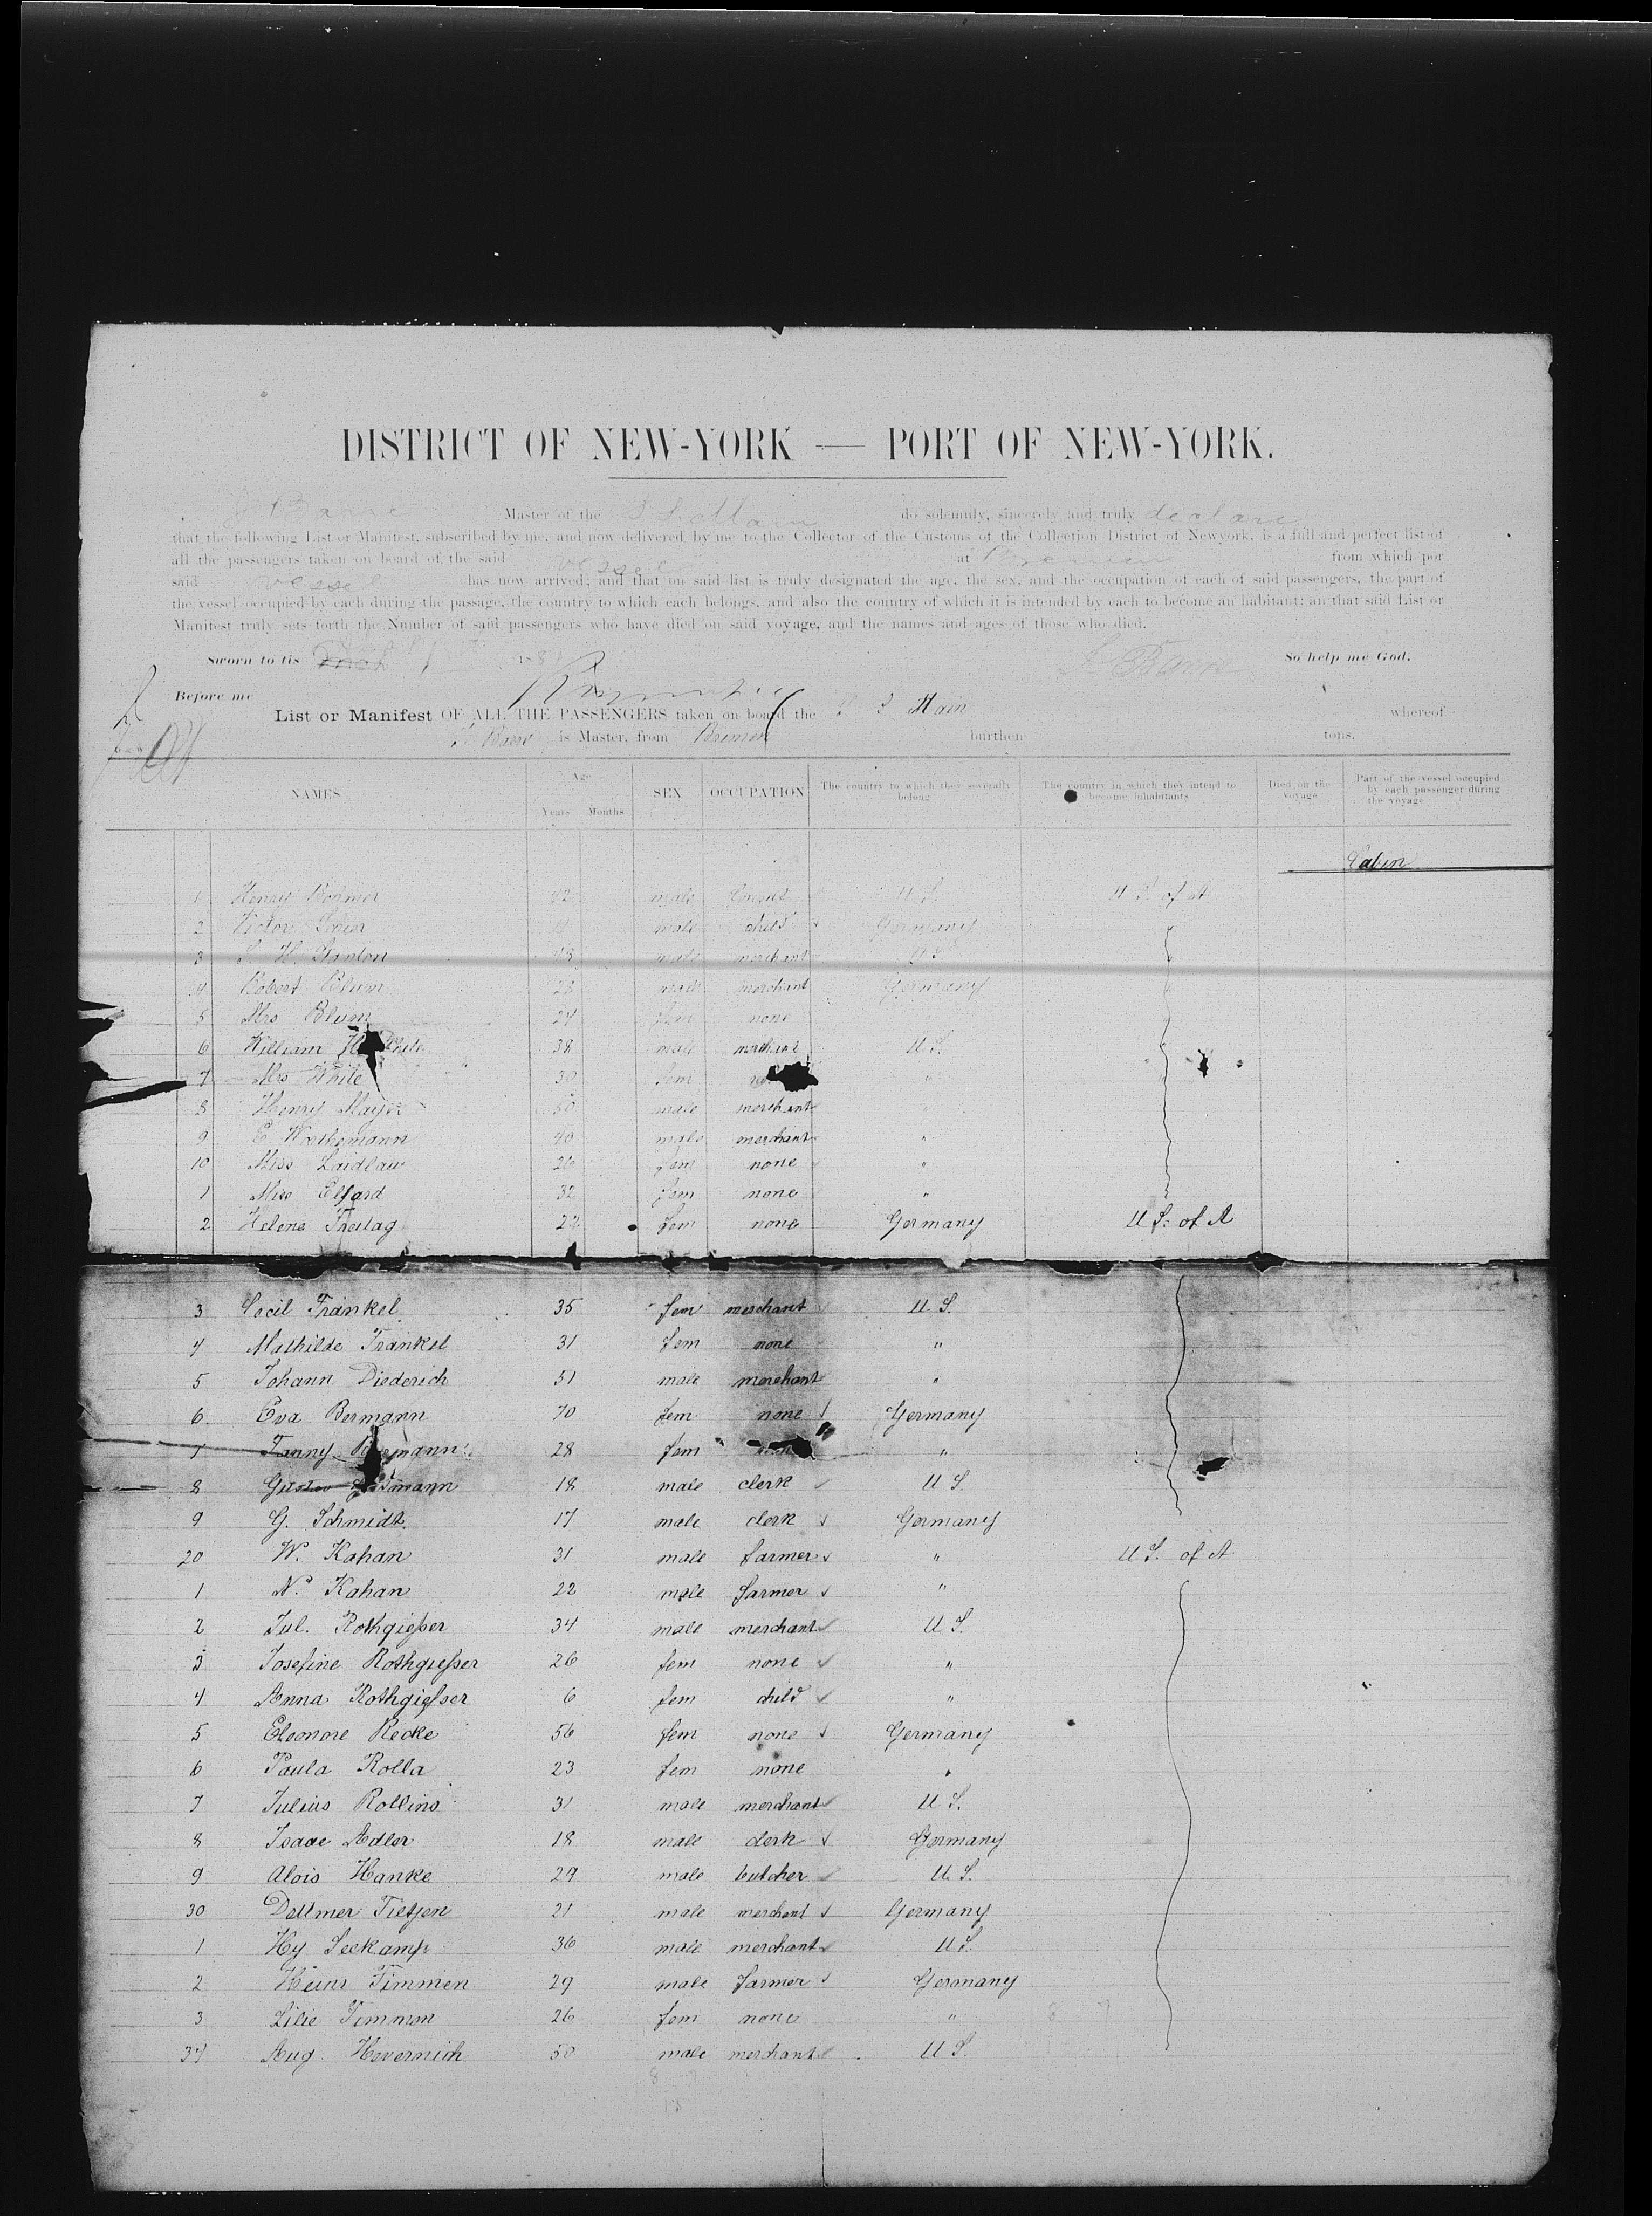 DISTRICT OF NEW-YORK — PORT OF NEW-YORK.
Master of the S. S. Main do solemnly, sincerely and truly declare
that the following List or Manifest, subscribed by me, and now delivered by me to the Collector of the Customs of the Collection District of Newyork, is a full and perfect list of
all the passengers taken on board of the said vessel at Bremen from which por
said vessel has now arrived; and that on said list is truly designated the age, the sex, and the occupation of each of said passengers, the part of
the vessel occupied by each during the passage, the country to which each belongs, and also the country of which it is intended by each to become an habitant; an that said List or
Manifest truly sets forth the Number of said passengers who have died on said voyage, and the names and ages of those who died.
Sworn to tis 188 So help me God.
Before me
List or Manifest OF ALL THE PASSENGERS taken on board the S. S. Main whereof
is Master, from Bremen burthen tons.
NAMES Age Years Months SEX OCCUPATION The country to which they severally belong The country in which they intend to become inhabitants Died on the voyage Part of the vessel occupied by each passenger during the voyage
Cabin
1 Henry 42 male U S. U S. of A
2 Victor male child Germany
3 S. H. Stanton 48 male merchant U S.
4 Robert Blum 28 male merchant Germany
5 Mrs Blum 24 fem none "
6 William H. White 38 male merchant U S.
7 Mrs White 30 fem "
8 Henry Mayer 50 male merchant "
9 E. 40 male merchant "
10 Miss Laidlaw 26 fem none "
1 Miss Elford 32 fem none "
2 Helene Freitag 29 fem none Germany U S. of A
3 Cecil Fränkel 35 fem merchant U S.
4 Mathilde Fränkel 31 fem none "
5 Johann Diederich 51 male merchant "
6 Eva Bermann 70 fem none Germany
7 Fanny 28 fem "
8 Gustav 18 male clerk U S.
9 G. Schmidt 17 male clerk Germany
20 W. Kahan 31 male farmer " U S. of A
1 N. Kahan 22 male farmer "
2 Jul. Rothgießer 34 male merchant U S.
3 Josefine Rothgießer 26 fem none "
4 Anna Rothgießer 6 fem child "
5 Eleonore Recke 56 fem none Germany
6 Paula Rolla 23 fem none "
7 Julius Rollins 31 male merchant U S.
8 Isaac Adler 18 male clerk Germany
9 Alois Hanke 29 male butcher U. S.
30 Dettmer Tietjen 21 male merchant Germany
1 Hy Seekamp 36 male merchant U S.
2 Heinr Timmen 29 male farmer Germany
3 Lilie Timmen 26 fem none "
34 Aug. Hevernich 50 male merchant U S.